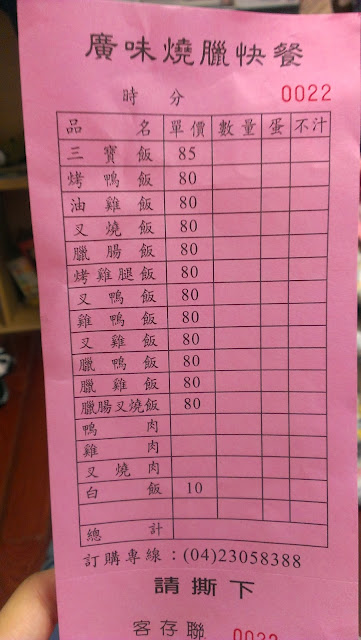 廣味燒臘快餐
時 分 0022
品名 單價 數量 蛋 不汁
三寶飯 85
烤鴨飯 80
油雞飯 80
叉燒飯 80
臘腸飯 80
烤雞腿飯 80
叉鴨飯 80
雞鴨飯 80
叉雞飯 80
臘鴨飯 80
臘雞飯 80
臘腸叉燒飯 80
鴨肉
雞肉
叉燒肉
白飯 10
總計
訂購專線：(04)23058388
請撕下
客存聯 0022